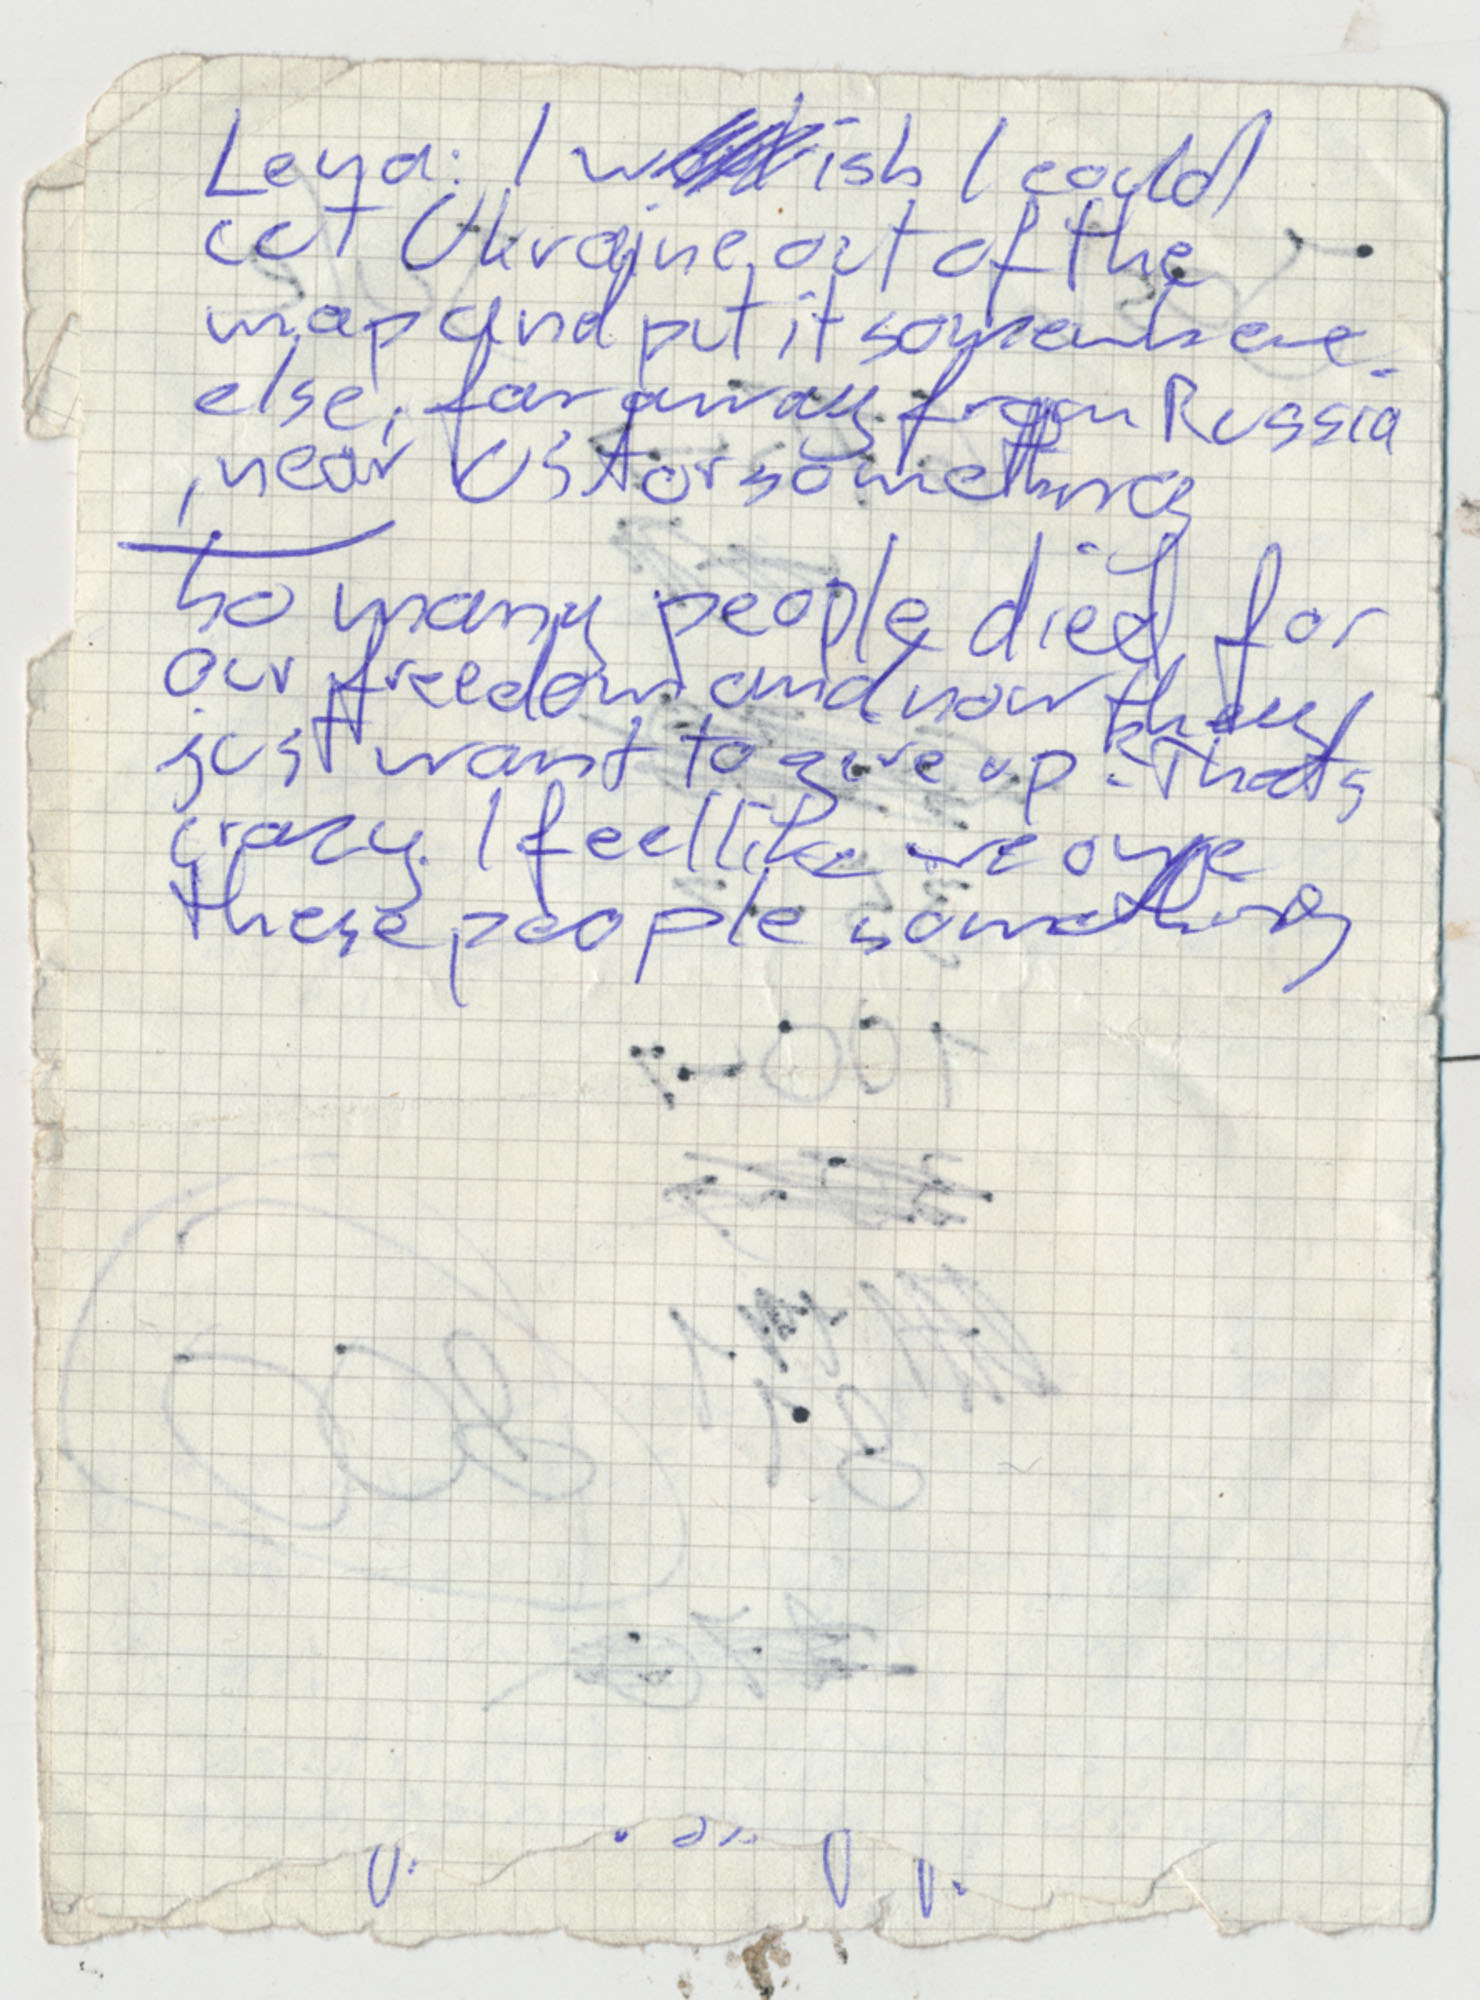 Lena: I wish I could
cut Ukraine out of the
map and put it somewhere
else, far away from Russia
, near US or something
So many people died for
our freedom and now they
just want to give up? Thats
crazy. I feel like we owe
these people something
100-7